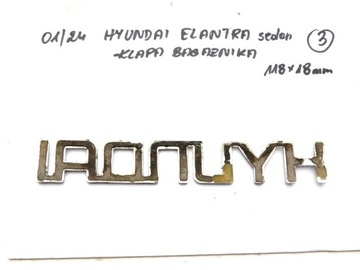 01/24 HYUNDAI ELANTRA sedan ③
-KLAPA BAGAŻNIKA
118×18mm
HYUNDAI